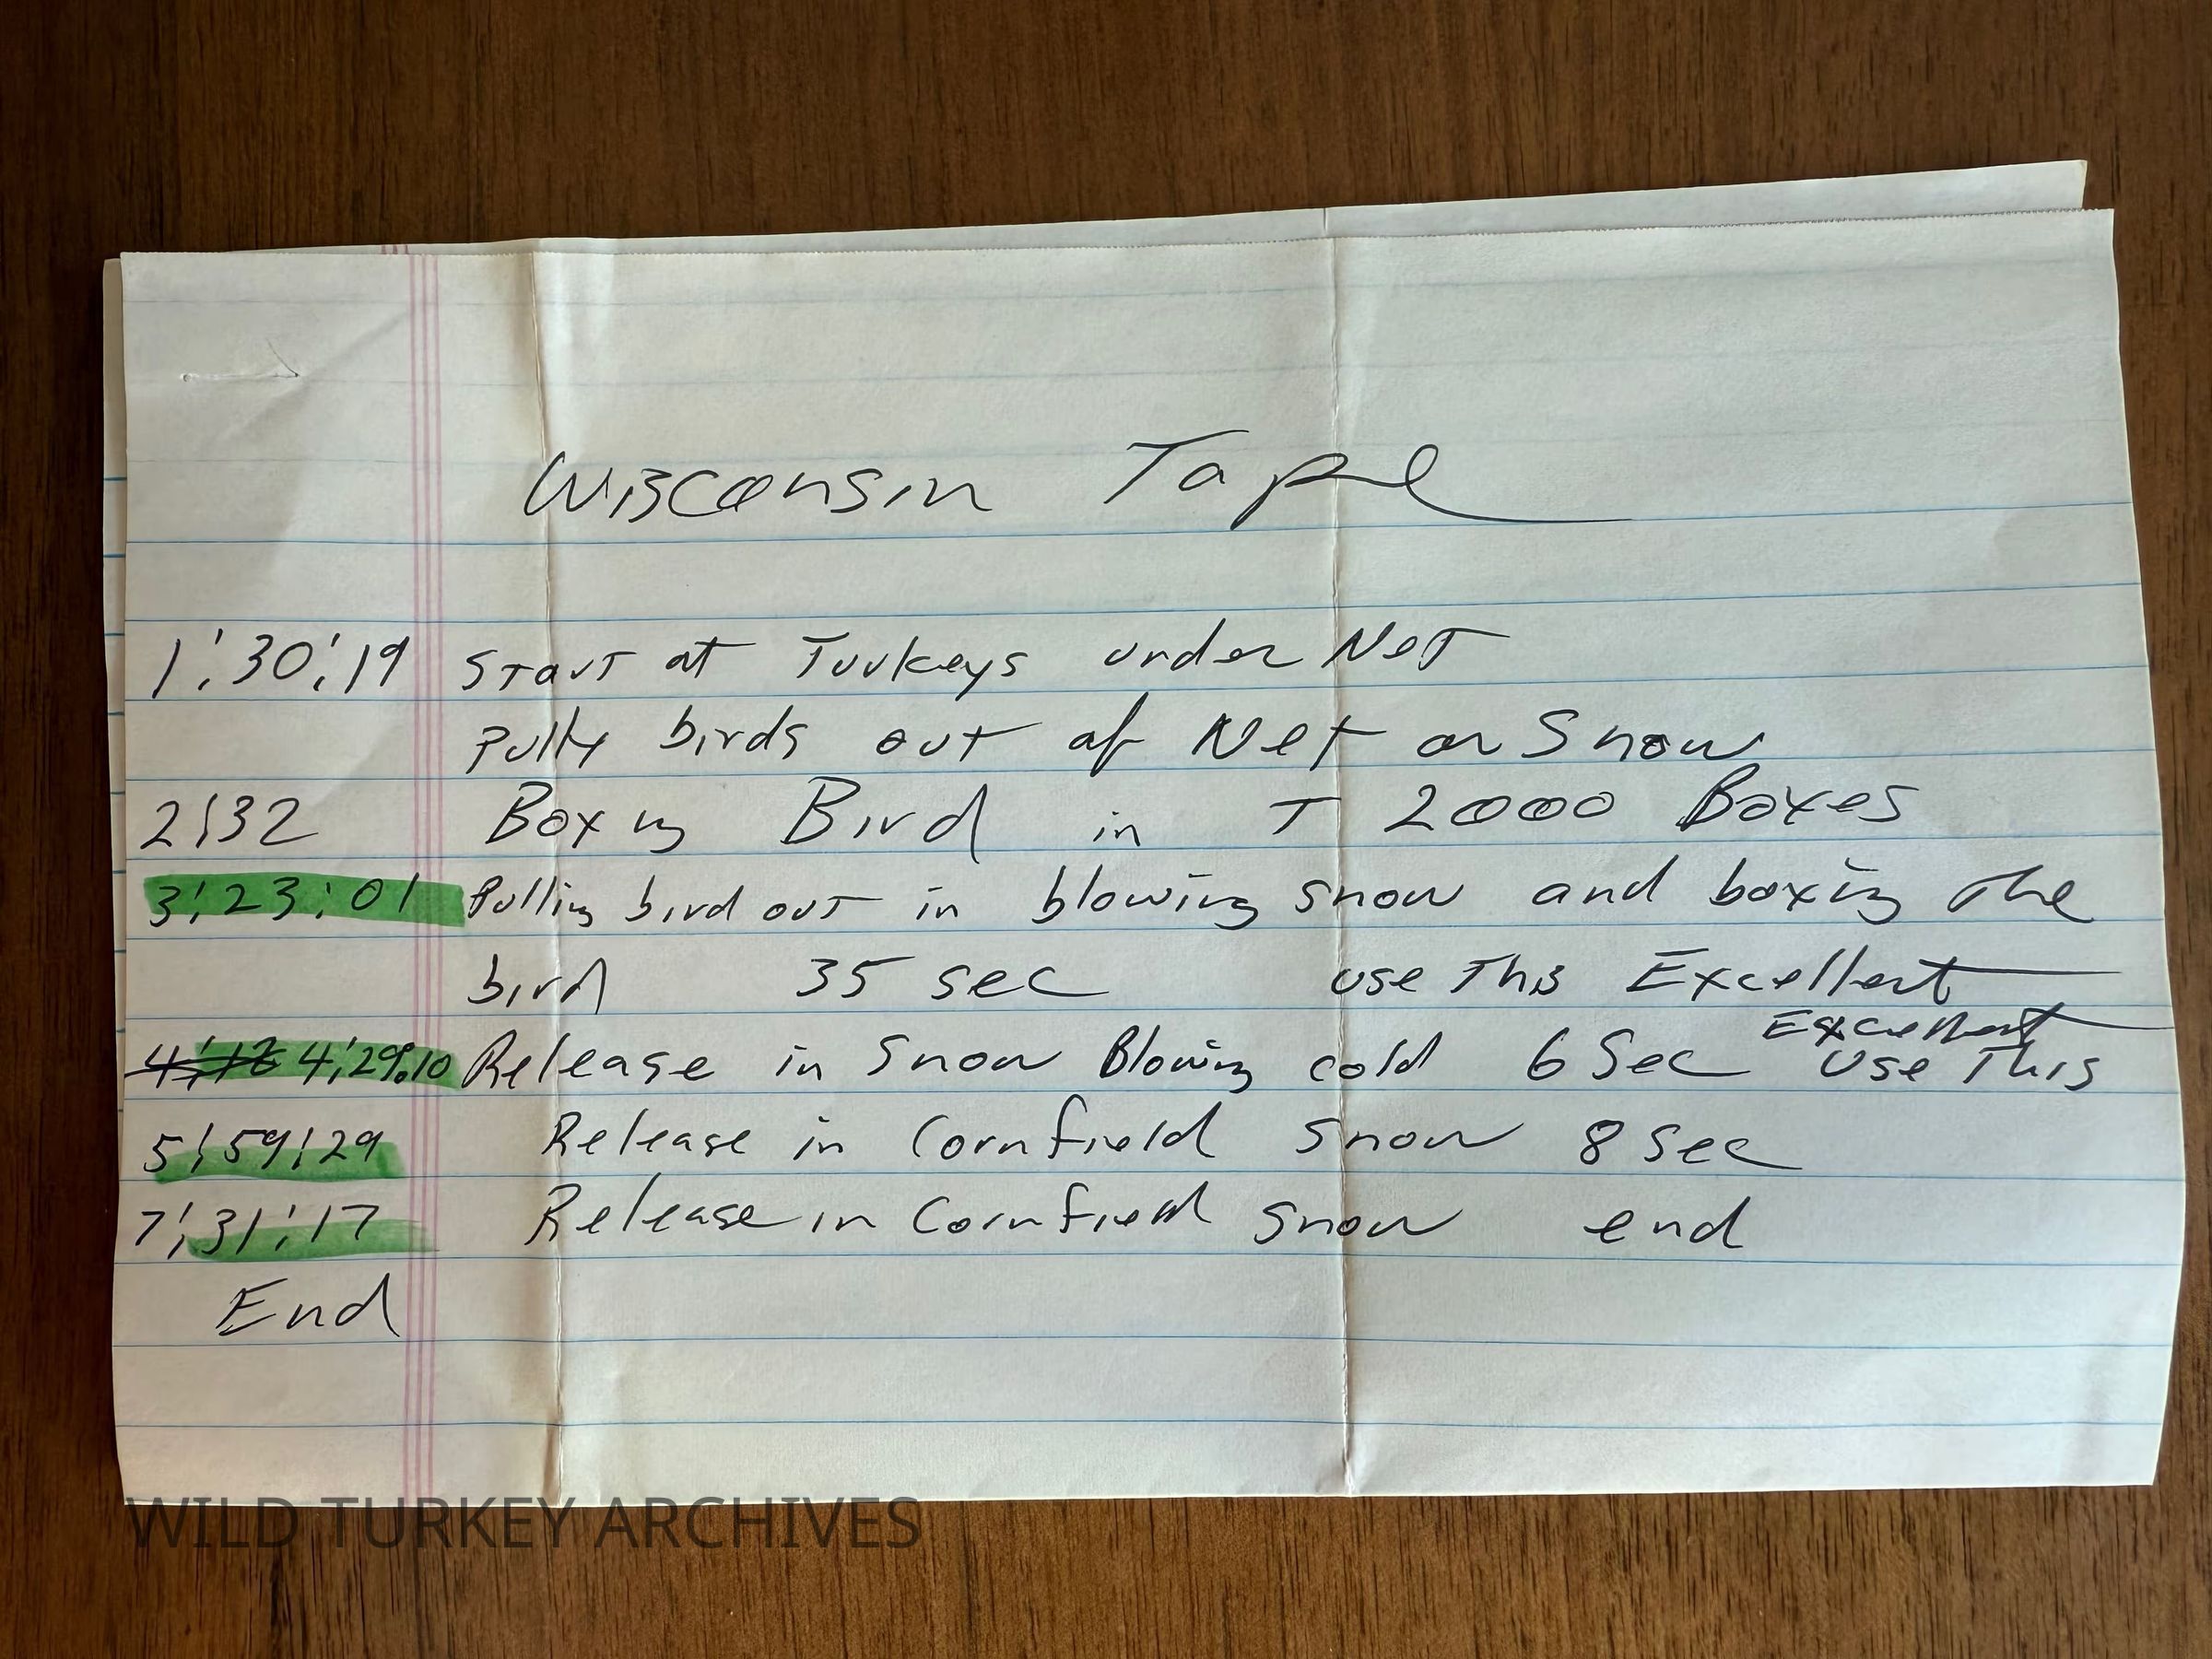 Wisconsin Tape
1:30:19 Start at Turkeys under Net
Pully birds out of Net on Snow
2:32 Boxing Bird in T 2000 Boxes
3:23:01 Pulling bird out in blowing snow and boxing the
bird 35 sec use This Excellent
4:12 4:29.10 Release in Snow Blowing cold 6 Sec Excellent Use This
5:59:29 Release in Cornfield snow 8 sec
7:31:17 Release in Cornfield snow end
End
WILD TURKEY ARCHIVES